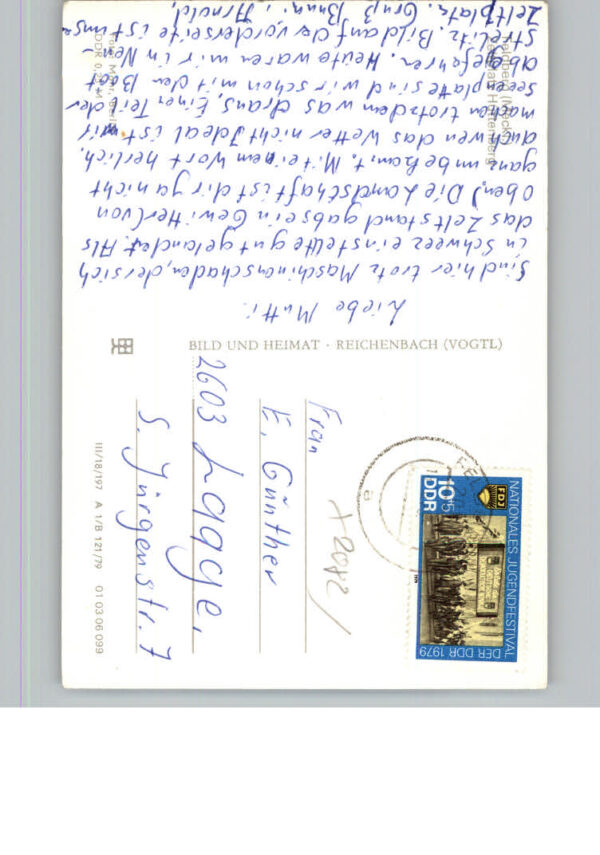 Feldberg (Meckl.)
Zeltplatz Hüttenberg
Liebe Mutti!
Sind hier trotz Maschinenschaden, der sich
in Schweez einstellte gut gelandet. Als
das Zelt stand gabs ein Gewitter (von
oben) Die Landschaft ist dir ja nicht
ganz unbekannt. Mit einem Wort herlich,
auch wen das Wetter nicht Ideal ist wir
machen trotzdem was draus. Einen Teil der
seenplatte sind wir schon mit den Boot
abgefahren. Heute waren wir in Neu-
strelitz. Bild auf der vorderseite ist unser
Zeltplatz. Gruß Brun. i Arnold,
BILD UND HEIMAT · REICHENBACH (VOGTL)
Frau
E. Günther
2603 Laage,
S. Jürgenstr. 7
III/18/197 A 1/B 121/79 01 03 06 099
NATIONALES JUGENDFESTIVAL
DER DDR 1979
FDJ
10+5
DDR